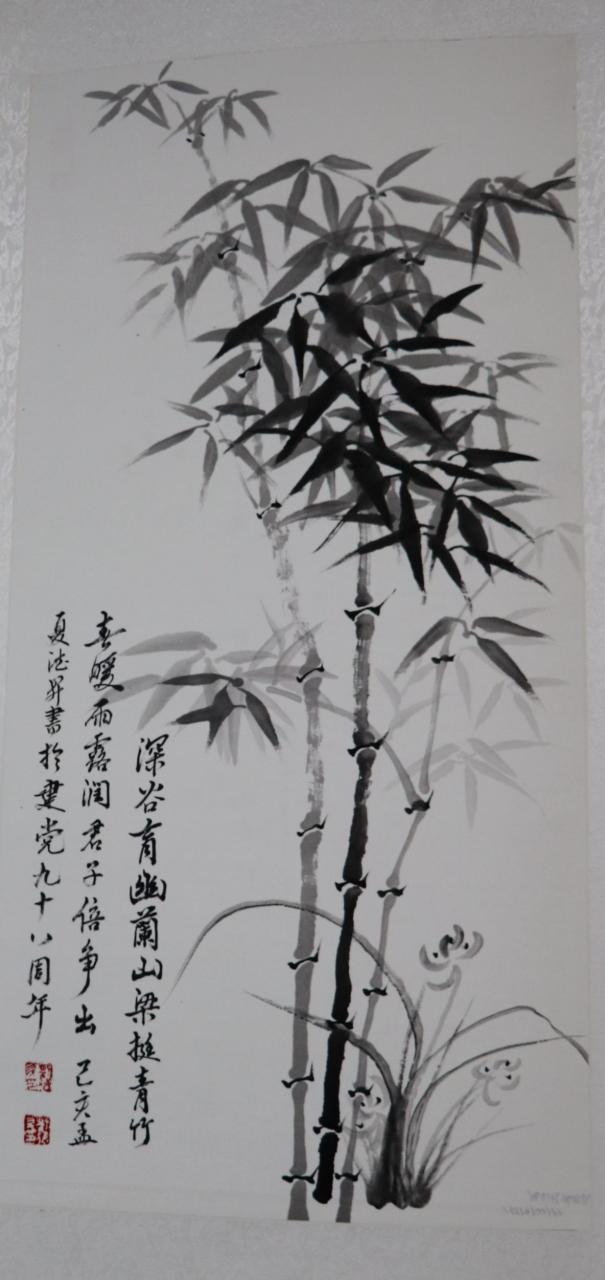 深谷育幽蘭山梁挺青竹
春暖雨露潤君子倍争出 己亥孟
夏德昇書於建党九十八周年